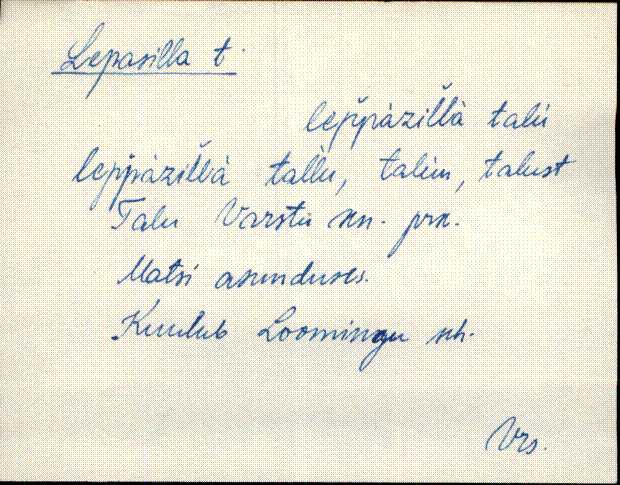 Lepasilla t.
lep̆p̀àzil̆l̀à talù
lep̆p̀àzil̆l̀à tal̀lu, talùn, talust
Talu Varstu kn. prk.
Matsi asunduses.
Kuulub Loomingu kh.
Vrs.